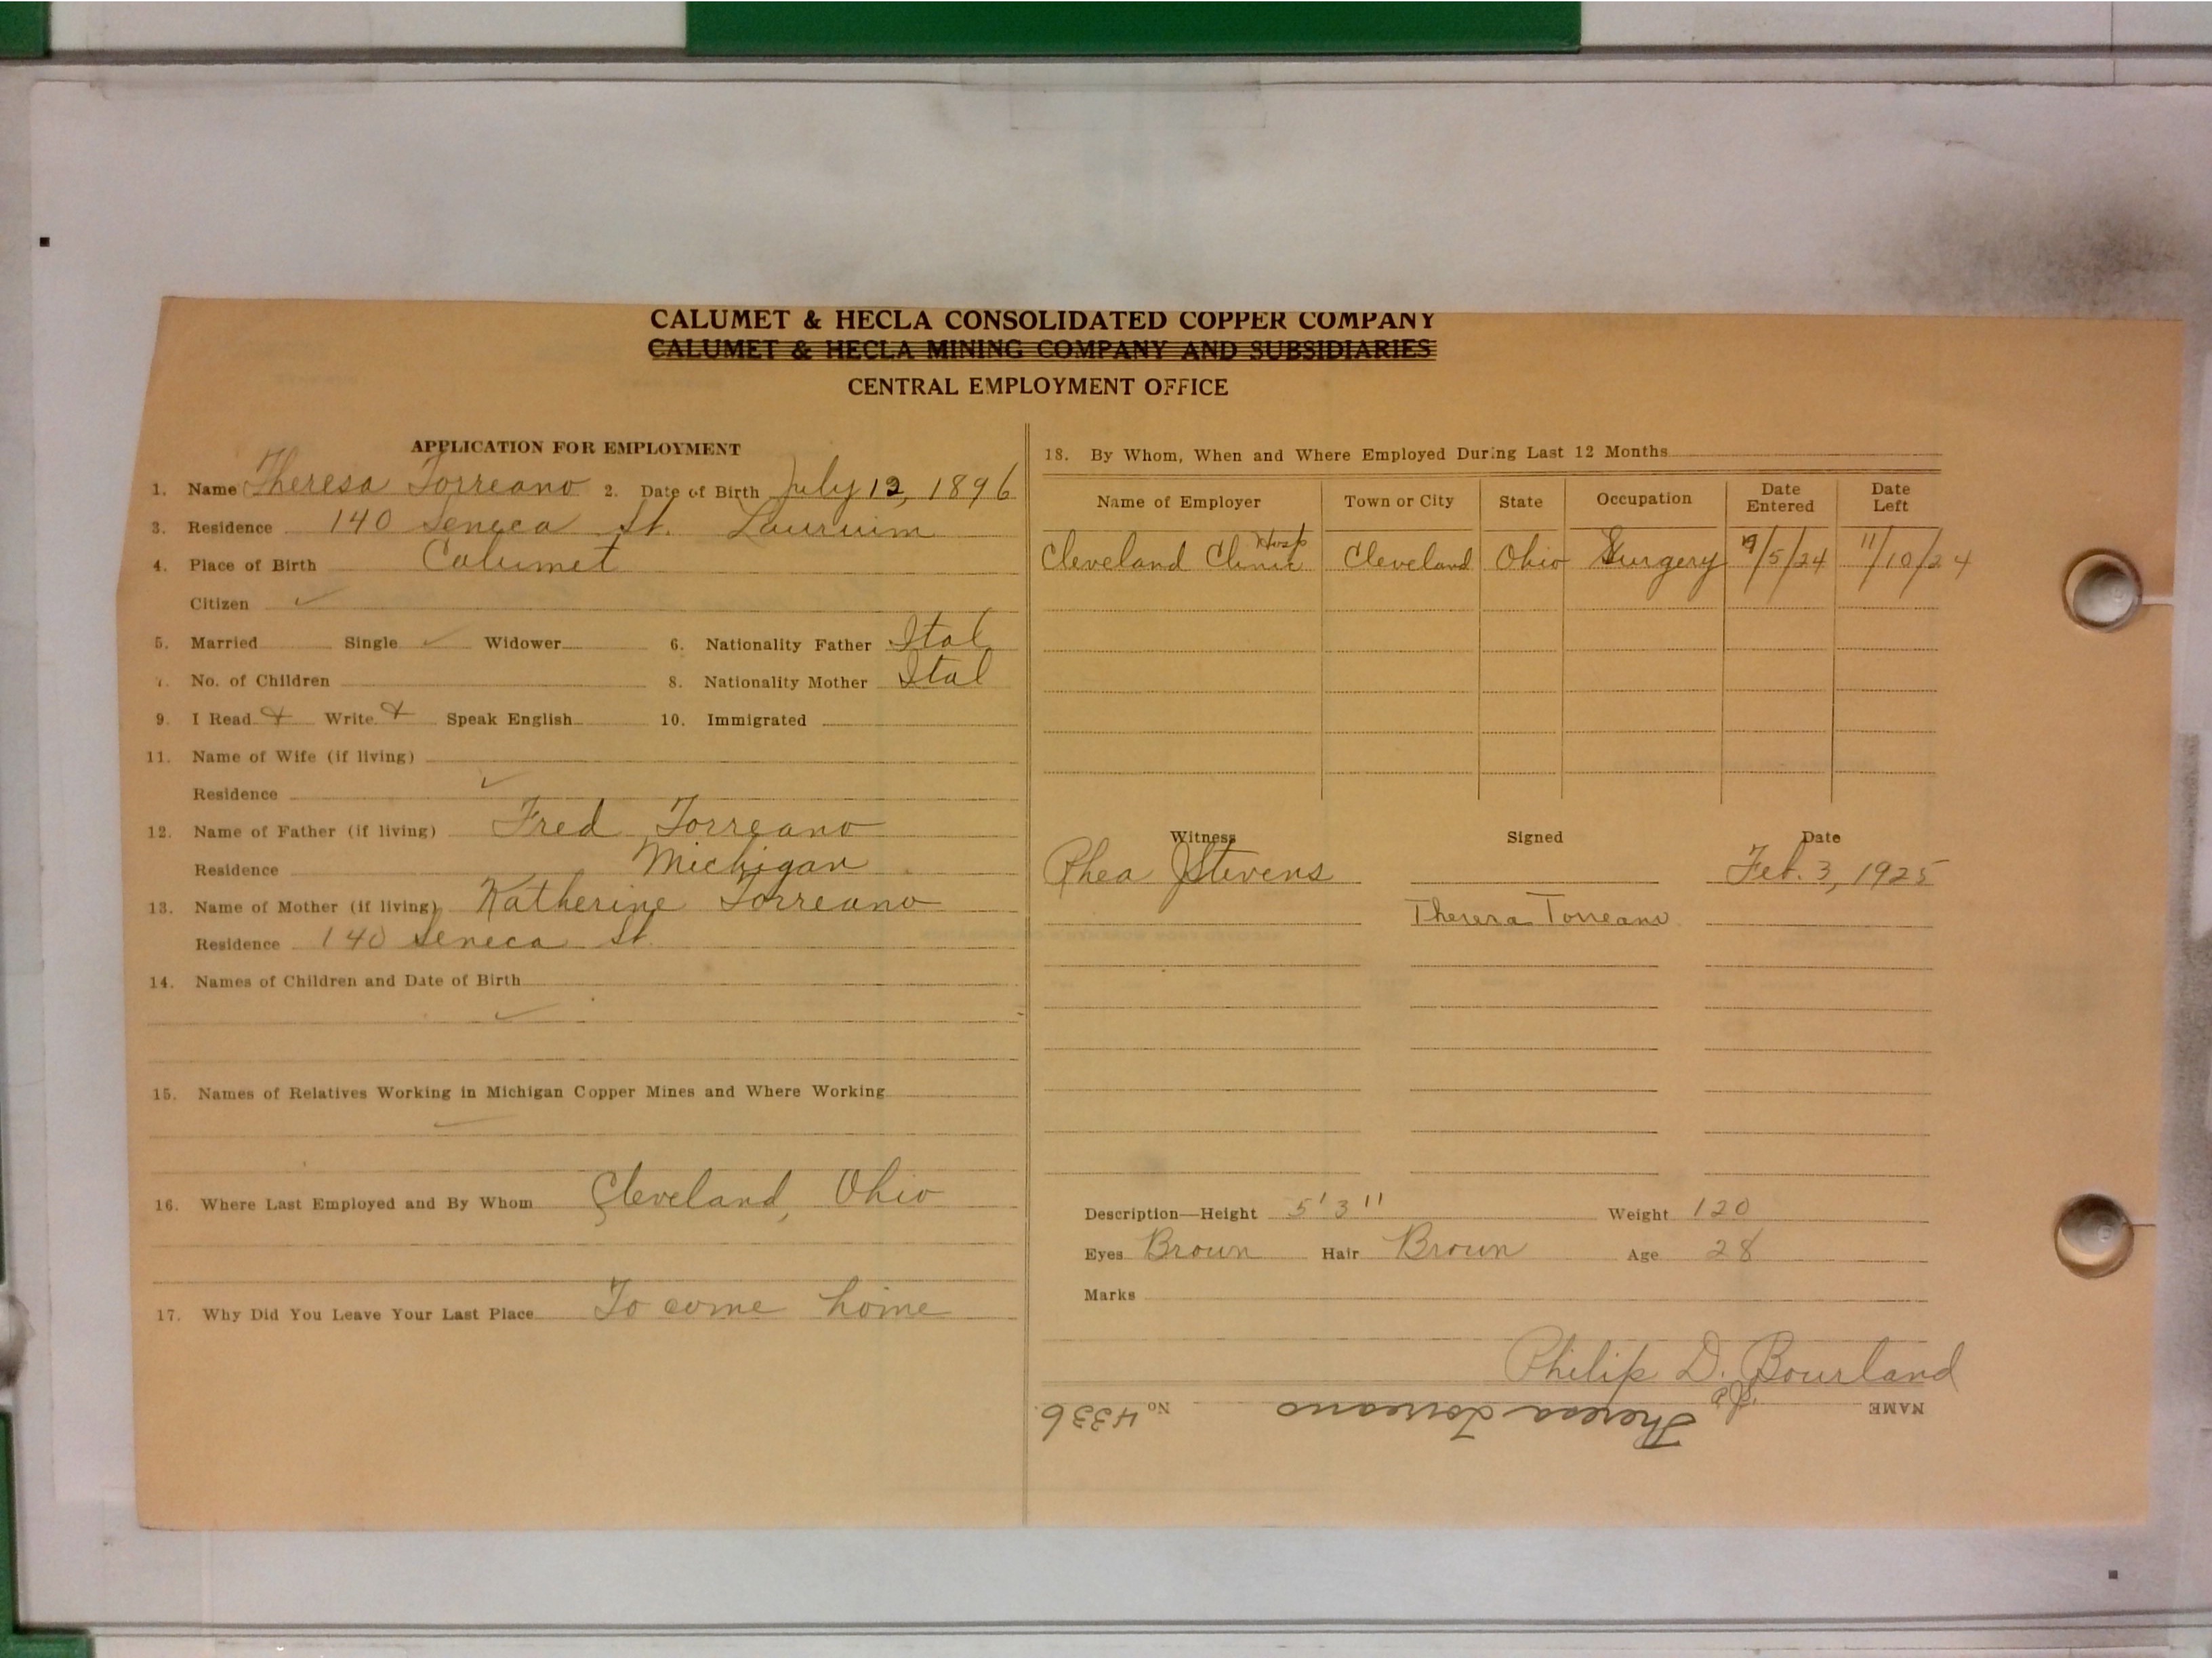 CALUMET & HECLA CONSOLIDATED COPPER COMPANY
CALUMET & HECLA MINING COMPANY AND SUBSIDIARIES
CENTRAL EMPLOYMENT OFFICE
APPLICATION FOR EMPLOYMENT
1. Name Theresa Torreano 2. Date of Birth July 12, 1896
3. Residence 140 Seneca St. Lauruim
4. Place of Birth Calumet
Citizen ✓
5. Married Single ✓ Widower 6. Nationality Father Ital
7. No. of Children 8. Nationality Mother Ital
9. I Read + Write + Speak English 10. Immigrated
11. Name of Wife (if living)
Residence ✓
12. Name of Father (if living) Fred Torreano
Residence Michigan
13. Name of Mother (if living) Katherine Torreano
Residence 140 Seneca St.
14. Names of Children and Date of Birth
✓
15. Names of Relatives Working in Michigan Copper Mines and Where Working
✓
16. Where Last Employed and By Whom Cleveland, Ohio
17. Why Did You Leave Your Last Place To come home
18. By Whom, When and Where Employed During Last 12 Months
Name of Employer Town or City State Occupation Date Entered Date Left
Cleveland Clinic Hosp Cleveland Ohio Surgery 9/5/24 11/10/24
Witness Signed Date
Rhea J Stevens Feb. 3, 1925
Theresa Torreano
Description—Height 5'3" Weight 120
Eyes Brown Hair Brown Age 28
Marks
Philip D. Bourland
NAME Theresa Torreano No 4336